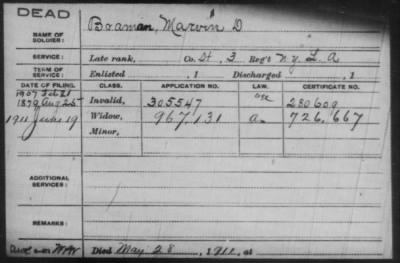 DEAD
NAME OF SOLDIER: Boaman, Marvin D
SERVICE: Late rank, Co. Bt. 3, Reg't N.Y. L. A
TERM OF SERVICE: Enlisted , 1 Discharged , 1
DATE OF FILING. CLASS. APPLICATION NO. LAW. CERTIFICATE NO.
1907 Feb 21
1879 Aug 25 Invalid, 305547 230609
1911 June 19 Widow, 967,131 a. 726,667
Minor,
ADDITIONAL SERVICES:
REMARKS:
Died May 28, 1911, at